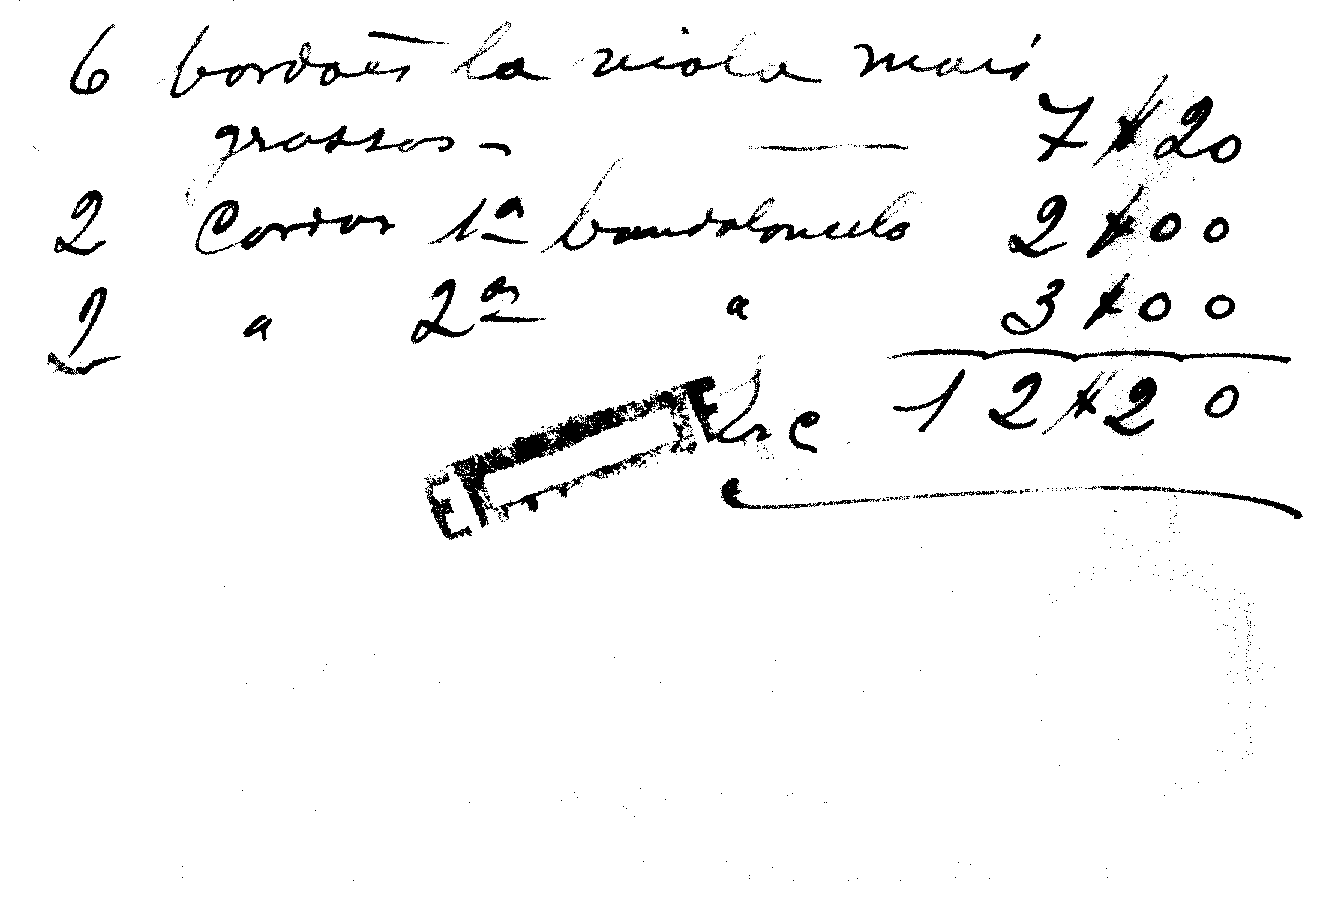 6 bordões la viola mais
grossos - — 7$20
2 Cordas 1ª bandoloncelo 2$00
2 " 2ª " 3$00
12$20